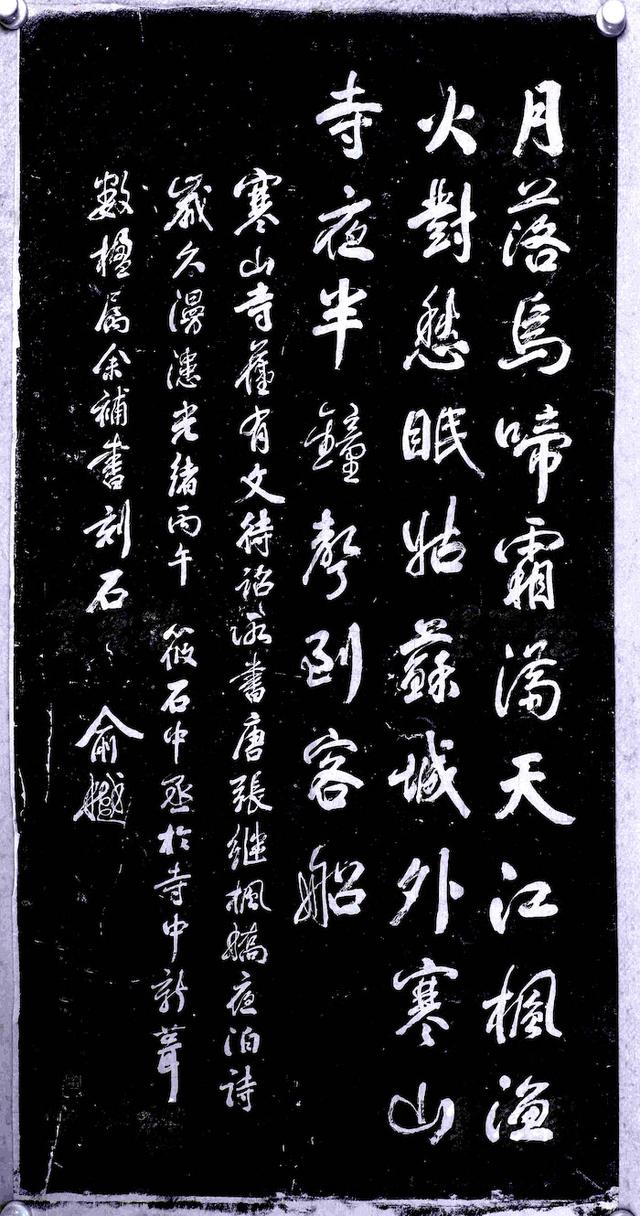 月落烏啼霜滿天江楓漁
火對愁眠姑蘇城外寒山
寺夜半鐘聲到客船
寒山寺舊有文待詔所書唐張繼楓橋夜泊詩
歲久漫漶光緒丙午筱石中丞於寺中新葺
數楹屬余補書刻石〻俞樾